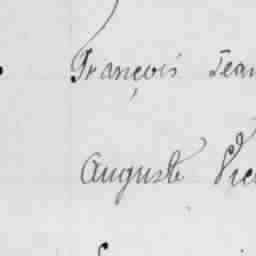 François Jean
Auguste Vic